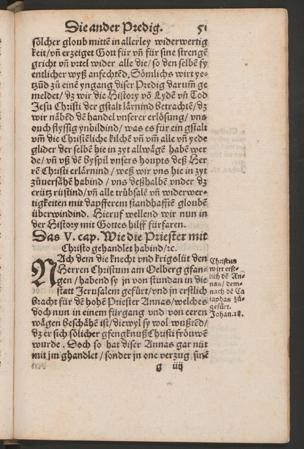 Die ander Predig. 51
sölcher gloub mittē in allerley widerwertig
keit/ vñ erzeiget Gott für vñ für sine strengē
gricht vñ vrtel wider alle die/ so den selbē
entlicher wyß anfechtēd. Sömlichs wirt
zůd zů eine yngang diser Predig darum ge
meldet/ dz wir die History vō Lydē vñ Tod
Jesu Christi der gstalt lärnind betrachtē/ dz
wir näbēd dē handel vnserer erlösung/ vns
ouch flyssig ynbildind/ was es für ein gstalt
vm die Christēliche kilchē vñ vm alle vñ yede
glider der selbē hie in zyt allwägē habē wer
de/ vñ vß dē byspil vnsers houpts deß Her
rē Christi erlärnind/ weß wir vns hie in zyt
zůuersähē habind/ vns deßhalbē vnder dz
crütz nütind/ vñ alle trübsalē vñ widerwer-
tigkeiten mit dapfferem standhafftē gloubē
überwindind. Hieruf wellend wir nun in
der History mit Gottes hilff fürfaren.
Das V. cap. Wie die Priester mit
Christo gehandlet habind/ ꝛc.
NAch dem die knecht vnd krigslüt den
Herren Christum am Oelberg gfan-
gen/ habend sy jn von stundan in die
statt Jerusalem gefürt/ vnd jn erstlich
bracht für dē hohē Priester Annas/ welches
doch nun in einem fürgang vnd von eeren
wägen beschähē ist/ diewyl sy wol wußtēd/
dz er sich sölicher gfengknuß Christi fröuwē
wurde. Doch so hat diser Annas gar nüt
mit jm ghandlet/ sonder jn one verzug sinē
g iij
Christus
wirt erst-
lich dē An-
nas/ dem-
nach dē Ca
iaphas zů-
gefürt.
Johan. 18.